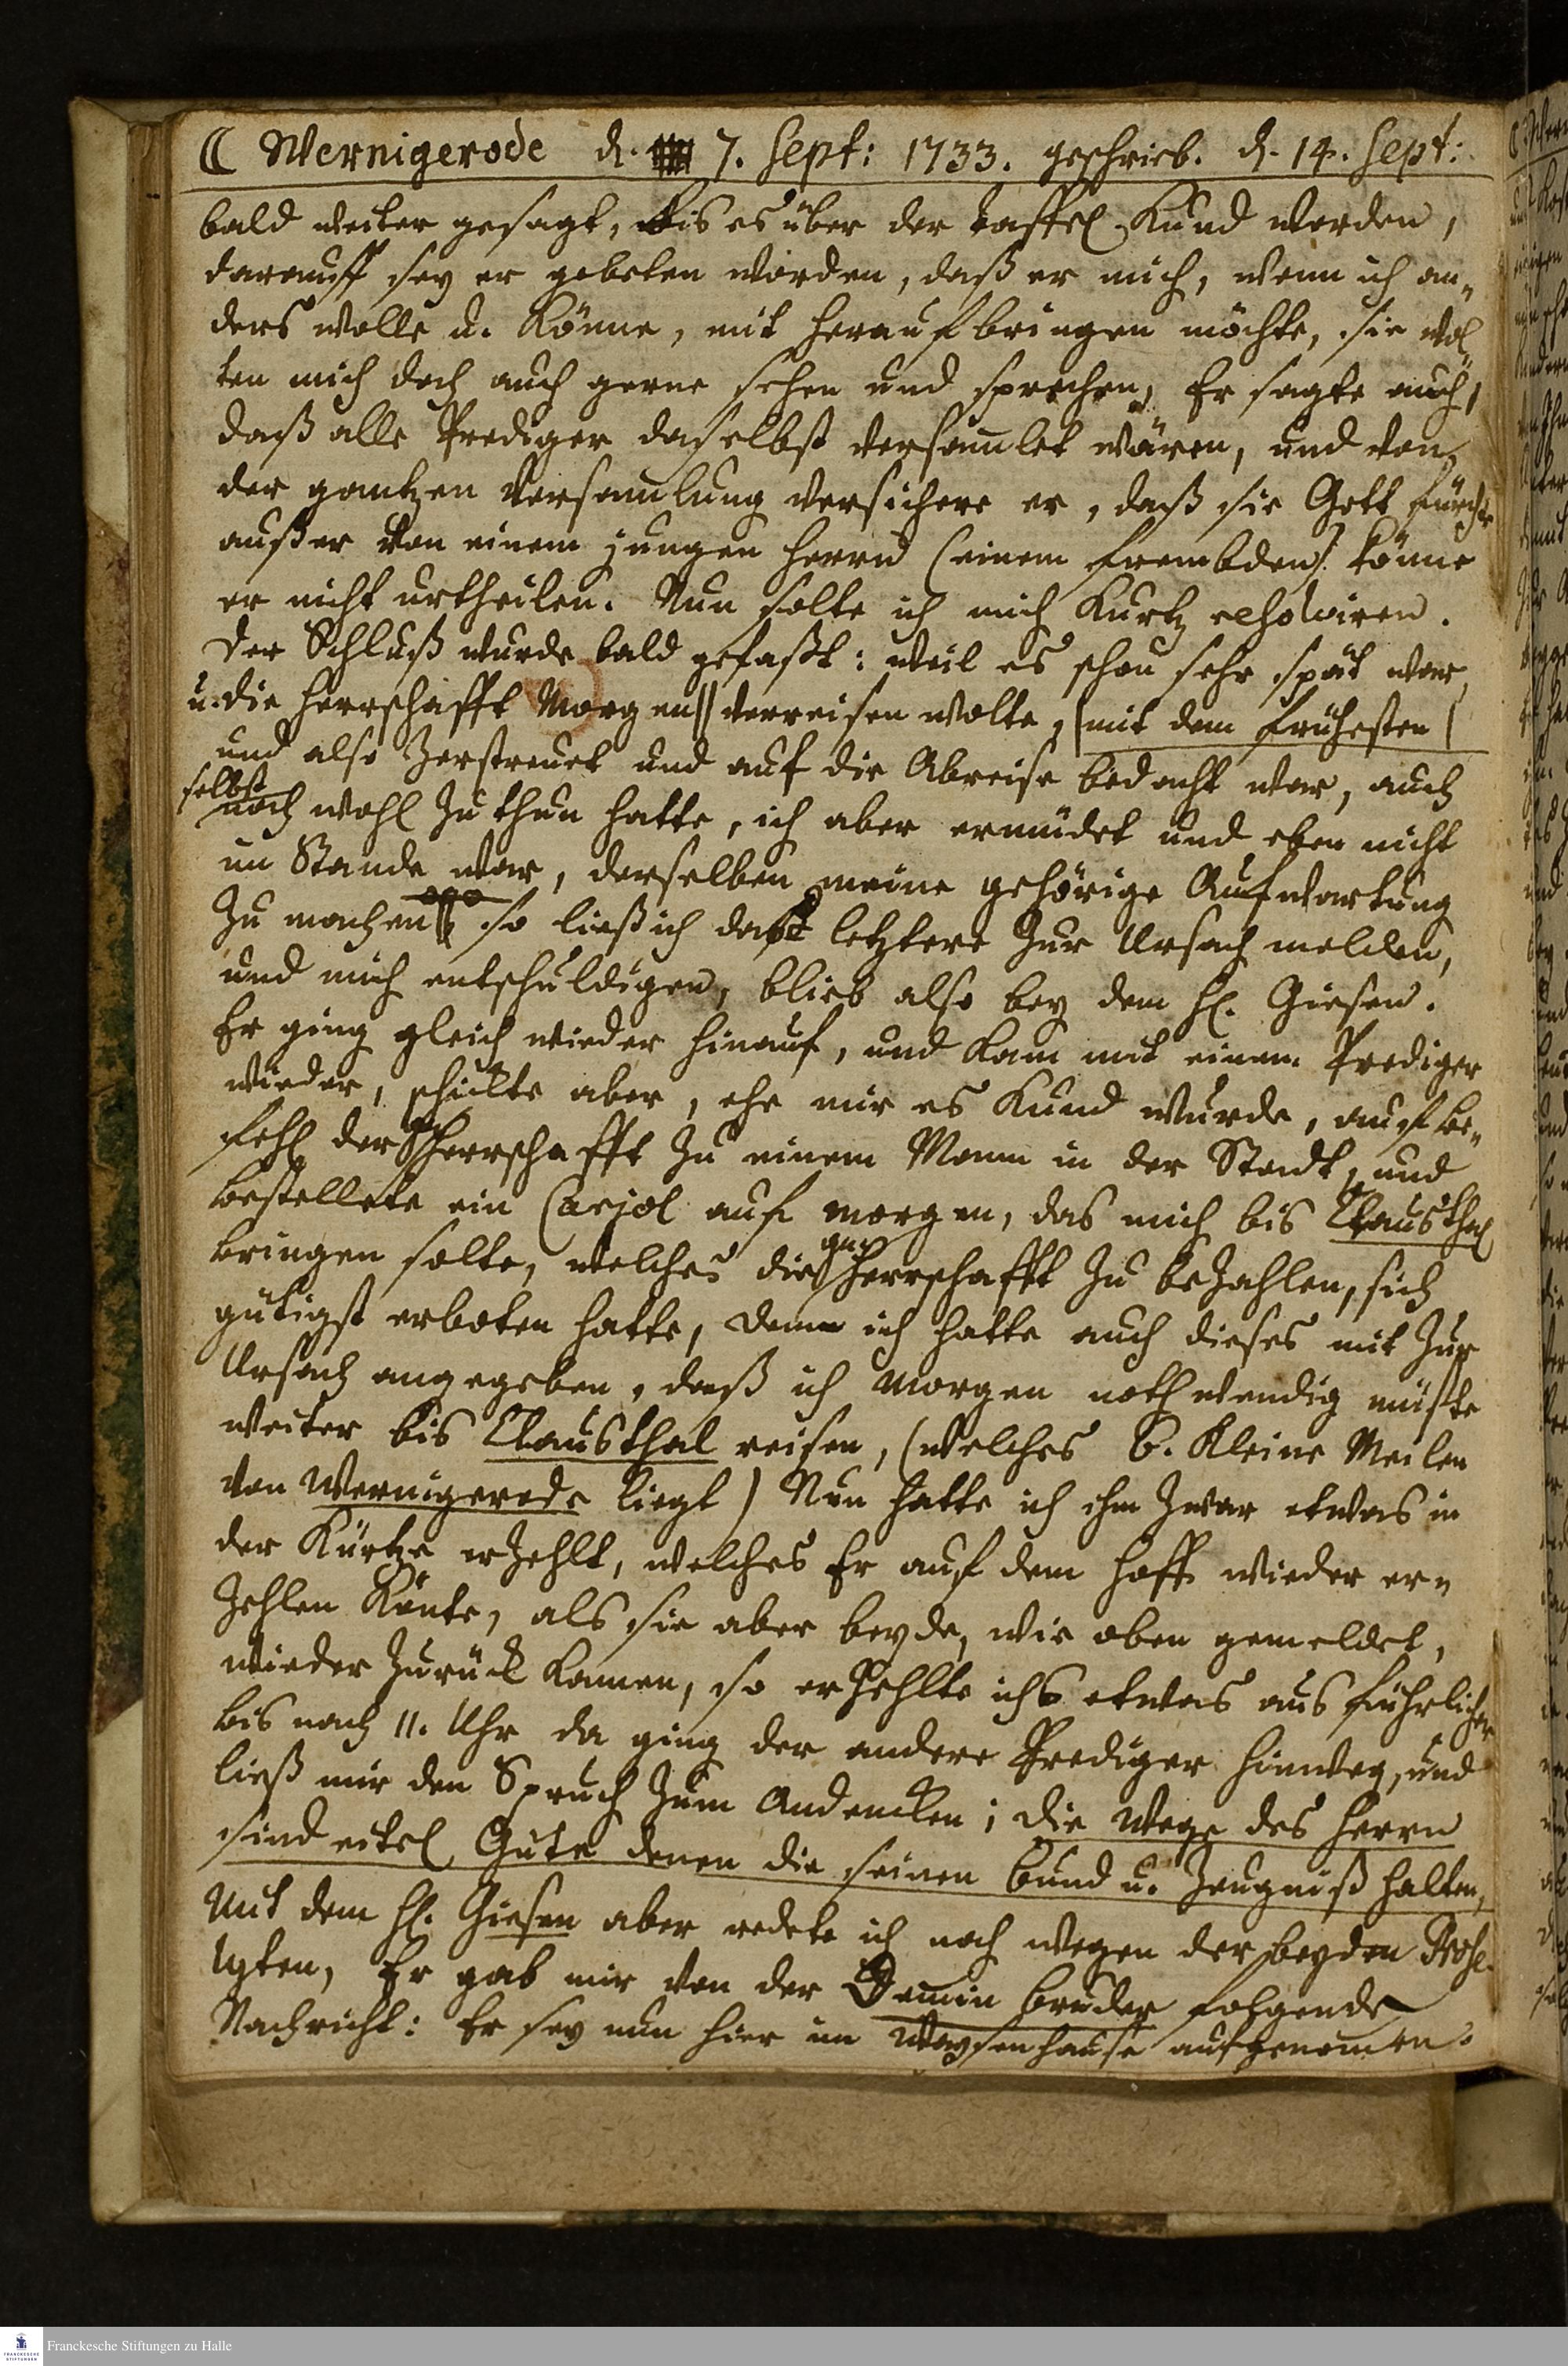 ☾ Wernigerode d. 7. Sept: 1733. geschrieb. d. 14. Sept:
bald weiter gesagt, bis es über der Taffel Kund worden,
darauff sey er gebeten worden, daß er mich, wenn ich an„
ders wolle u. Könne, mit herauf bringen möchte, sie wol„
ten mich doch auch gerne sehen und sprechen, Er sagte auch,
daß alle Prediger daselbst versam̅let wären, und von
der gantzen Versam̅lung versichere er, daß sie Gott fürchte
außer von einem jungen Herrn (einem frembden) könne
er nicht urtheilen. Nun solte ich mich Kurtz resolviren.
Der Schluß wurde bald gefaßt: weil es schon sehr spät war,
u. die Herrschafft Morgen || verreisen wolte, (mit dem frühesten (
und also Zerstreuet und auf die Abreise bedacht war, auch
selbst
noch wohl Zu thun hatte, ich aber ermüdet und eben nicht
im Stande war, derselben meine gehörige Aufwartung
Zu machen so ließ ich das letztere Zur Ursach melden,
und mich entschuldigen, blieb also bey dem H. Giesen.
Er ging gleich wieder hinauf, und kam mit einem Prediger
wieder, schickte aber, ehe mir es Kund wurde, auf Be„
fehl der Herrschafft Zu einem Mann in der Stadt, und
bestellete ein Cariol auf morgen, das mich bis Clausthal
bringen solte, welches die Herrschafft Zu beZahlen, sich
gn
gütigst erboten hatte, denn ich hatte auch dieses mit Zur
Ursach angegeben, daß ich Morgen nothwendig müste
weiter bis Clausthal reisen, (welches 6. Kleine Meilen
von Wernigerode liegt) Nun hatte ich ihm Zwar etwas in
der Kürtze erZehlt, welches Er auf dem Hoff wieder er„
Zehlen Könte, als sie aber beyde, wie oben gemeldet,
wieder Zurück kamen, so erZehlte ichs etwas ausführlicher
bis nach 11. Uhr da ging der andere Prediger hinweg, und
ließ mir den Spruch Zum Andencken; die Wege des Herrn
sind eitel Güte denen die seinen Bund u. Zeugniß halten,
Mit dem H. Giesen aber redete ich noch wegen der beyden Prose„
lyten, Er gab mir von der Bruder folgende
Nachricht: Er sey nun hier im Waysenhause aufgenom̅en.
Franckesche Stiftungen zu Halle